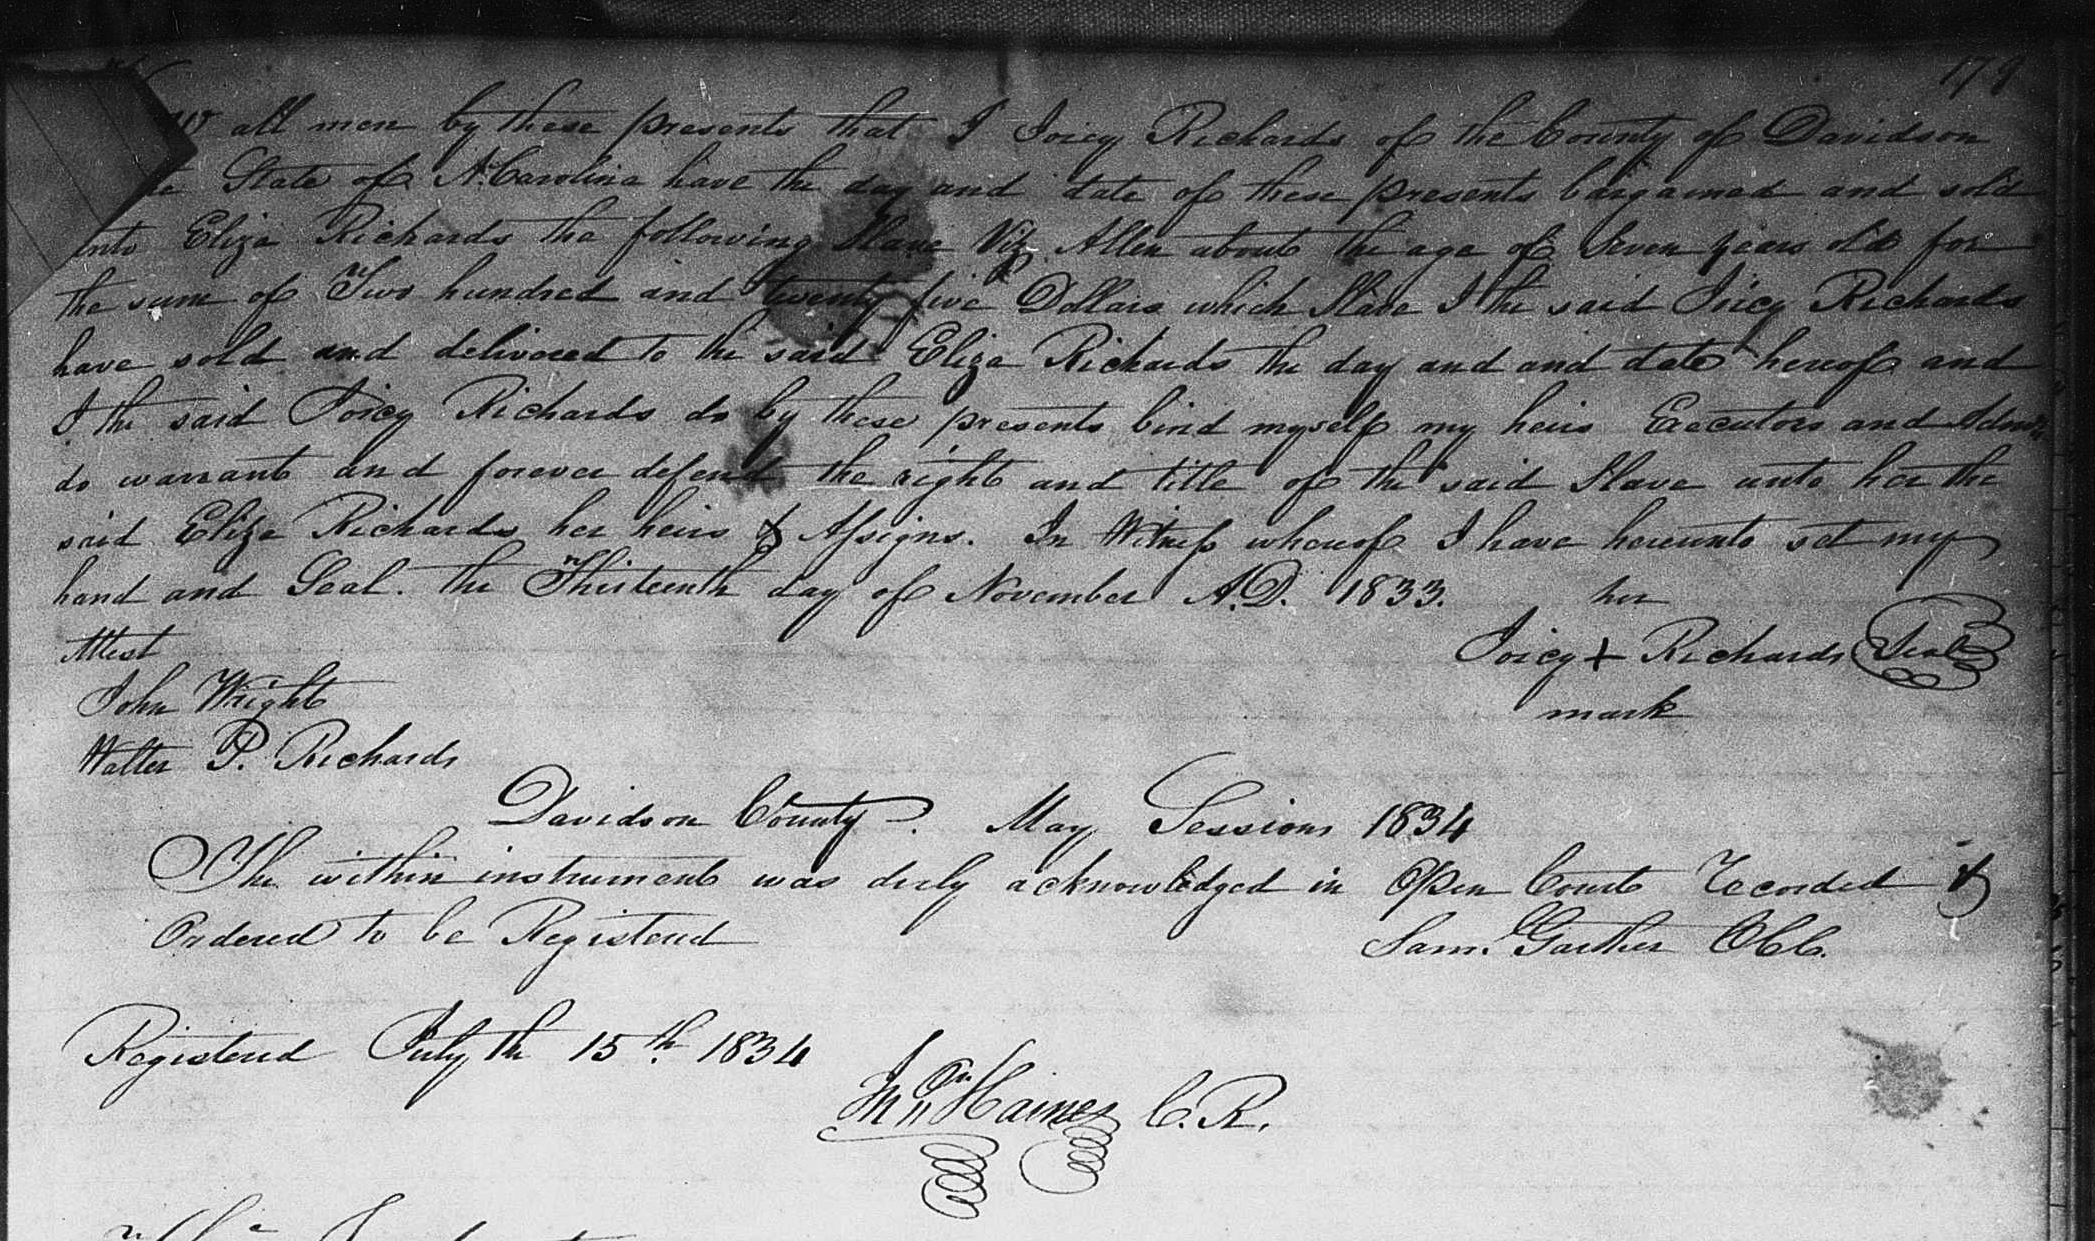 179
all men by these presents that I Joicy Richards of the County of Davidson
State of N. Carolina have the day and date of these presents bargained and sold
unto Eliza Richards the following Slave Viz Allen about the age of Seven years old for
the sum of Two hundred and twenty five Dollars which Slave I the said Joicy Richards
have sold and delivered to the said Eliza Richards the day and and date hereof and
I the said Joicy Richards do by these presents bind myself my heirs Executors and Admrs
do warrant and forever defend the right and title of the said Slave unto her the
said Eliza Richards her heirs & Assigns. In Witness whereof I have hereunto set my
hand and Seal. the Thirteenth day of November A.D. 1833. her
Attest Joicy + Richards Seal
John Wright mark
Walter P. Richards
Davidson County. May Sessions 1834
The within instrument was duly acknowledged in Open Court Recorded &
Ordered to be Registered Sam. Gaither CCC.
Registered July th 15th. 1834
Jno. Haines C.R.